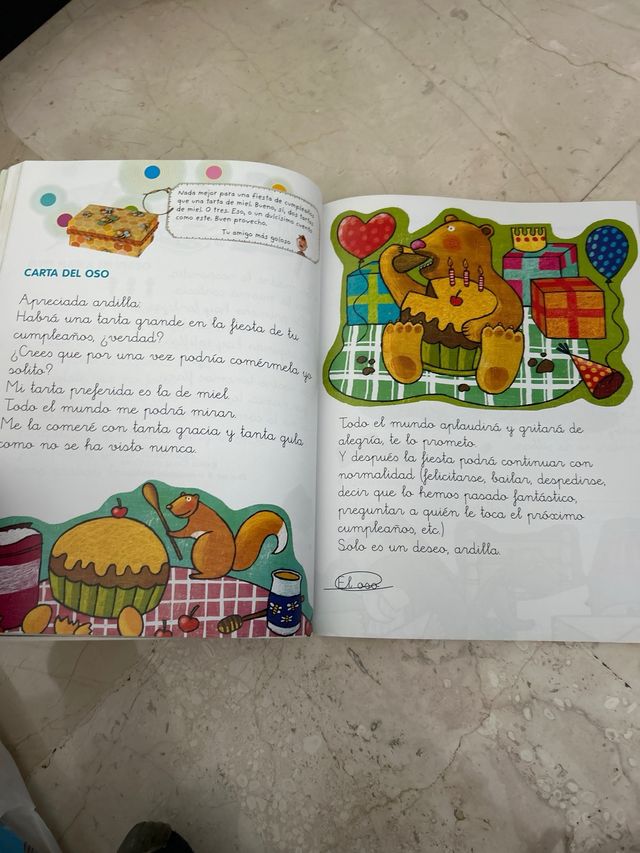 Nada mejor para una fiesta de cumpleaños
que una tarta de miel. Bueno, sí, dos tartas
de miel. O tres. Eso, o un dulcísimo cuento
como este. Buen provecho.
Tu amigo más goloso
CARTA DEL OSO
Apreciada ardilla:
Habrá una tarta grande en la fiesta de tu
cumpleaños, ¿verdad?
¿Crees que por una vez podría comérmela yo
solito?
Mi tarta preferida es la de miel.
Todo el mundo me podrá mirar.
Me la comeré con tanta gracia y tanta gula
como no se ha visto nunca.
Todo el mundo aplaudirá y gritará de
alegría, te lo prometo.
Y después la fiesta podrá continuar con
normalidad (felicitarse, bailar, despedirse,
decir que lo hemos pasado fantástico,
preguntar a quién le toca el próximo
cumpleaños, etc.)
Solo es un deseo, ardilla.
El oso